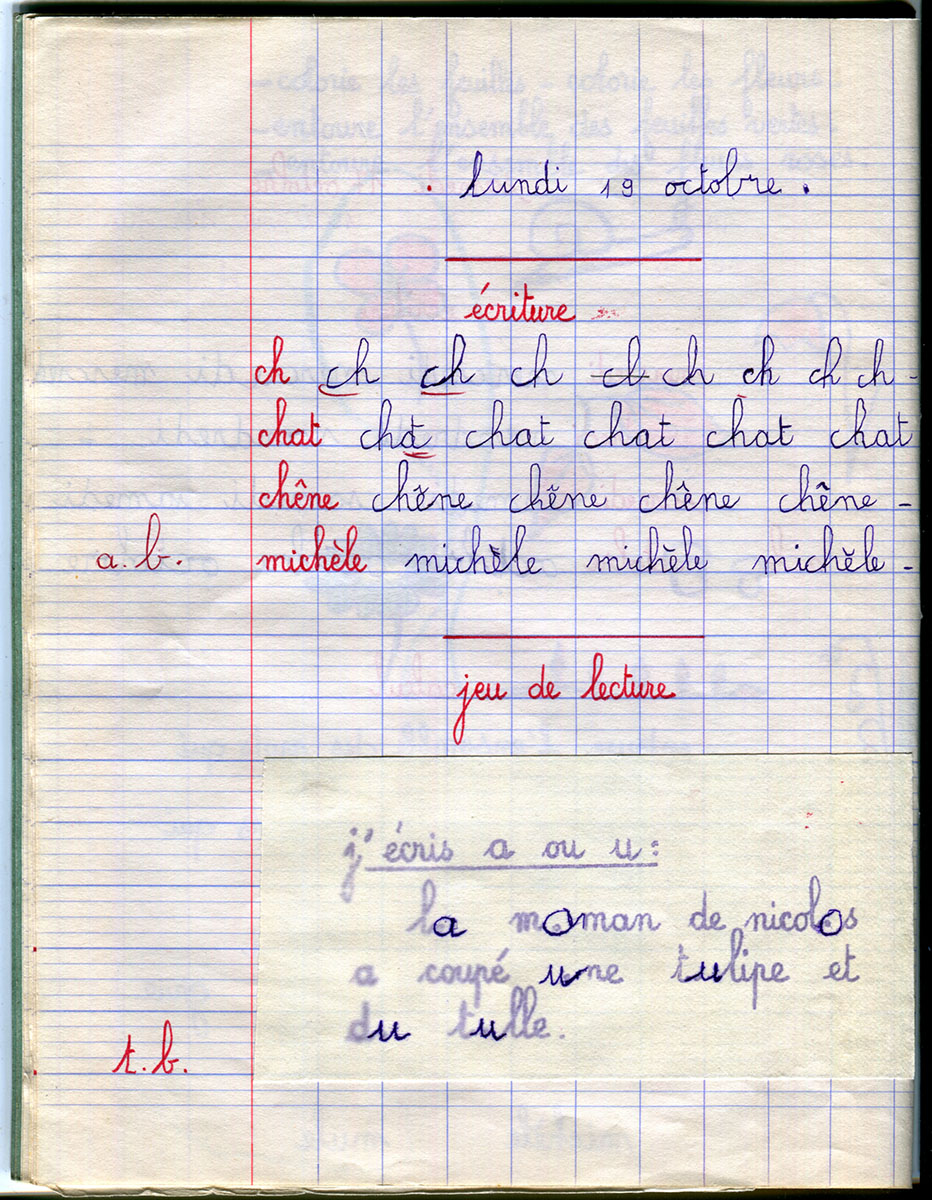 . lundi 19 octobre .
écriture
ch ch ch ch ch ch ch ch ch -
chat chat chat chat chat chat
chêne chêne chêne chêne chêne -
a.b. michèle michèle michèle michèle -
jeu de lecture
j'écris a ou u :
la moman de nicolos
a coupé une tulipe et
du tulle.
t.b.